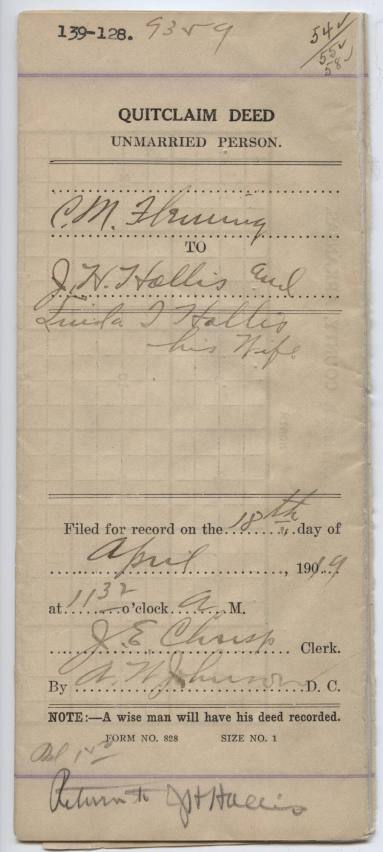 139-128. 9359
54✓
55✓
58✓
QUITCLAIM DEED
UNMARRIED PERSON.
C. M. Fleming
TO
J. H. Hollis and
Linda T Hollis
his Wife
Filed for record on the 18th day of
April, 1919
at 11 32 o'clock A M.
J. E. Chrisp Clerk.
By A. W. Johnson D. C.
NOTE:—A wise man will have his deed recorded.
FORM NO. 828 SIZE NO. 1
Return to J H Hollis